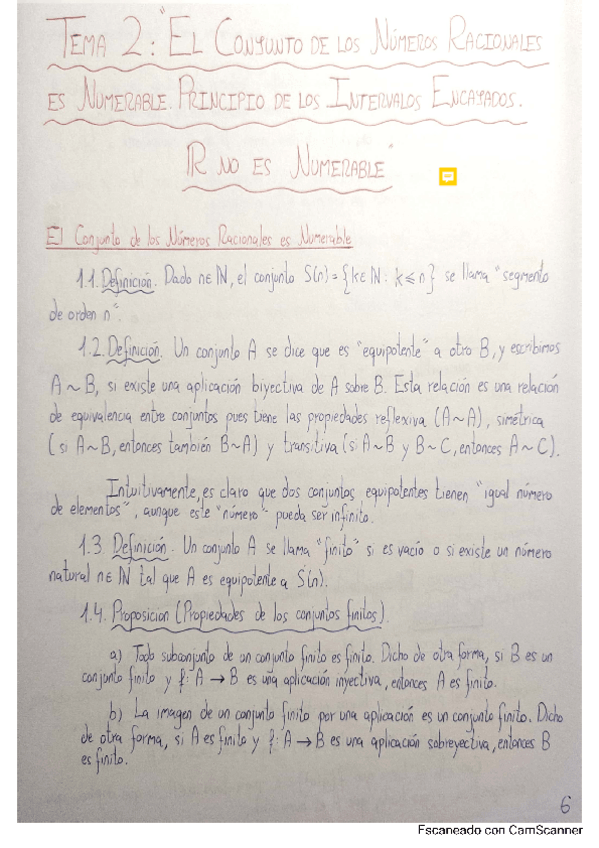 TEMA 2: "EL CONJUNTO DE LOS NÚMEROS RACIONALES
ES NUMERABLE. PRINCIPIO DE LOS INTERVALOS ENCAJADOS.
ℝ NO ES NUMERABLE"
El Conjunto de los Números Racionales es Numerable
1.1. Definición. Dado n∈ℕ, el conjunto S(n)={k∈ℕ: k⩽n} se llama "segmento
de orden n".
1.2. Definición. Un conjunto A se dice que es "equipotente" a otro B, y escribimos
A∼B, si existe una aplicación biyectiva de A sobre B. Esta relación es una relación
de equivalencia entre conjuntos pues tiene las propiedades reflexiva (A∼A), simétrica
(si A∼B, entonces también B∼A) y transitiva (si A∼B y B∼C, entonces A∼C).
Intuitivamente, es claro que dos conjuntos equipotentes tienen "igual número
de elementos", aunque este "número" pueda ser infinito.
1.3 Definición. Un conjunto A se llama "finito" si es vacío o si existe un número
natural n∈ℕ tal que A es equipotente a S(n).
1.4. Proposicion (Propiedades de los conjuntos finitos).
a) Todo subconjunto de un conjunto finito es finito. Dicho de otra forma, si B es un
conjunto finito y f: A → B es una aplicación inyectiva, entonces A es finito.
b) La imagen de un conjunto finito por una aplicación es un conjunto finito. Dicho
de otra forma, si A es finito y f: A → B es una aplicación sobreyectiva, entonces B
es finito.
6
Escaneado con CamScanner